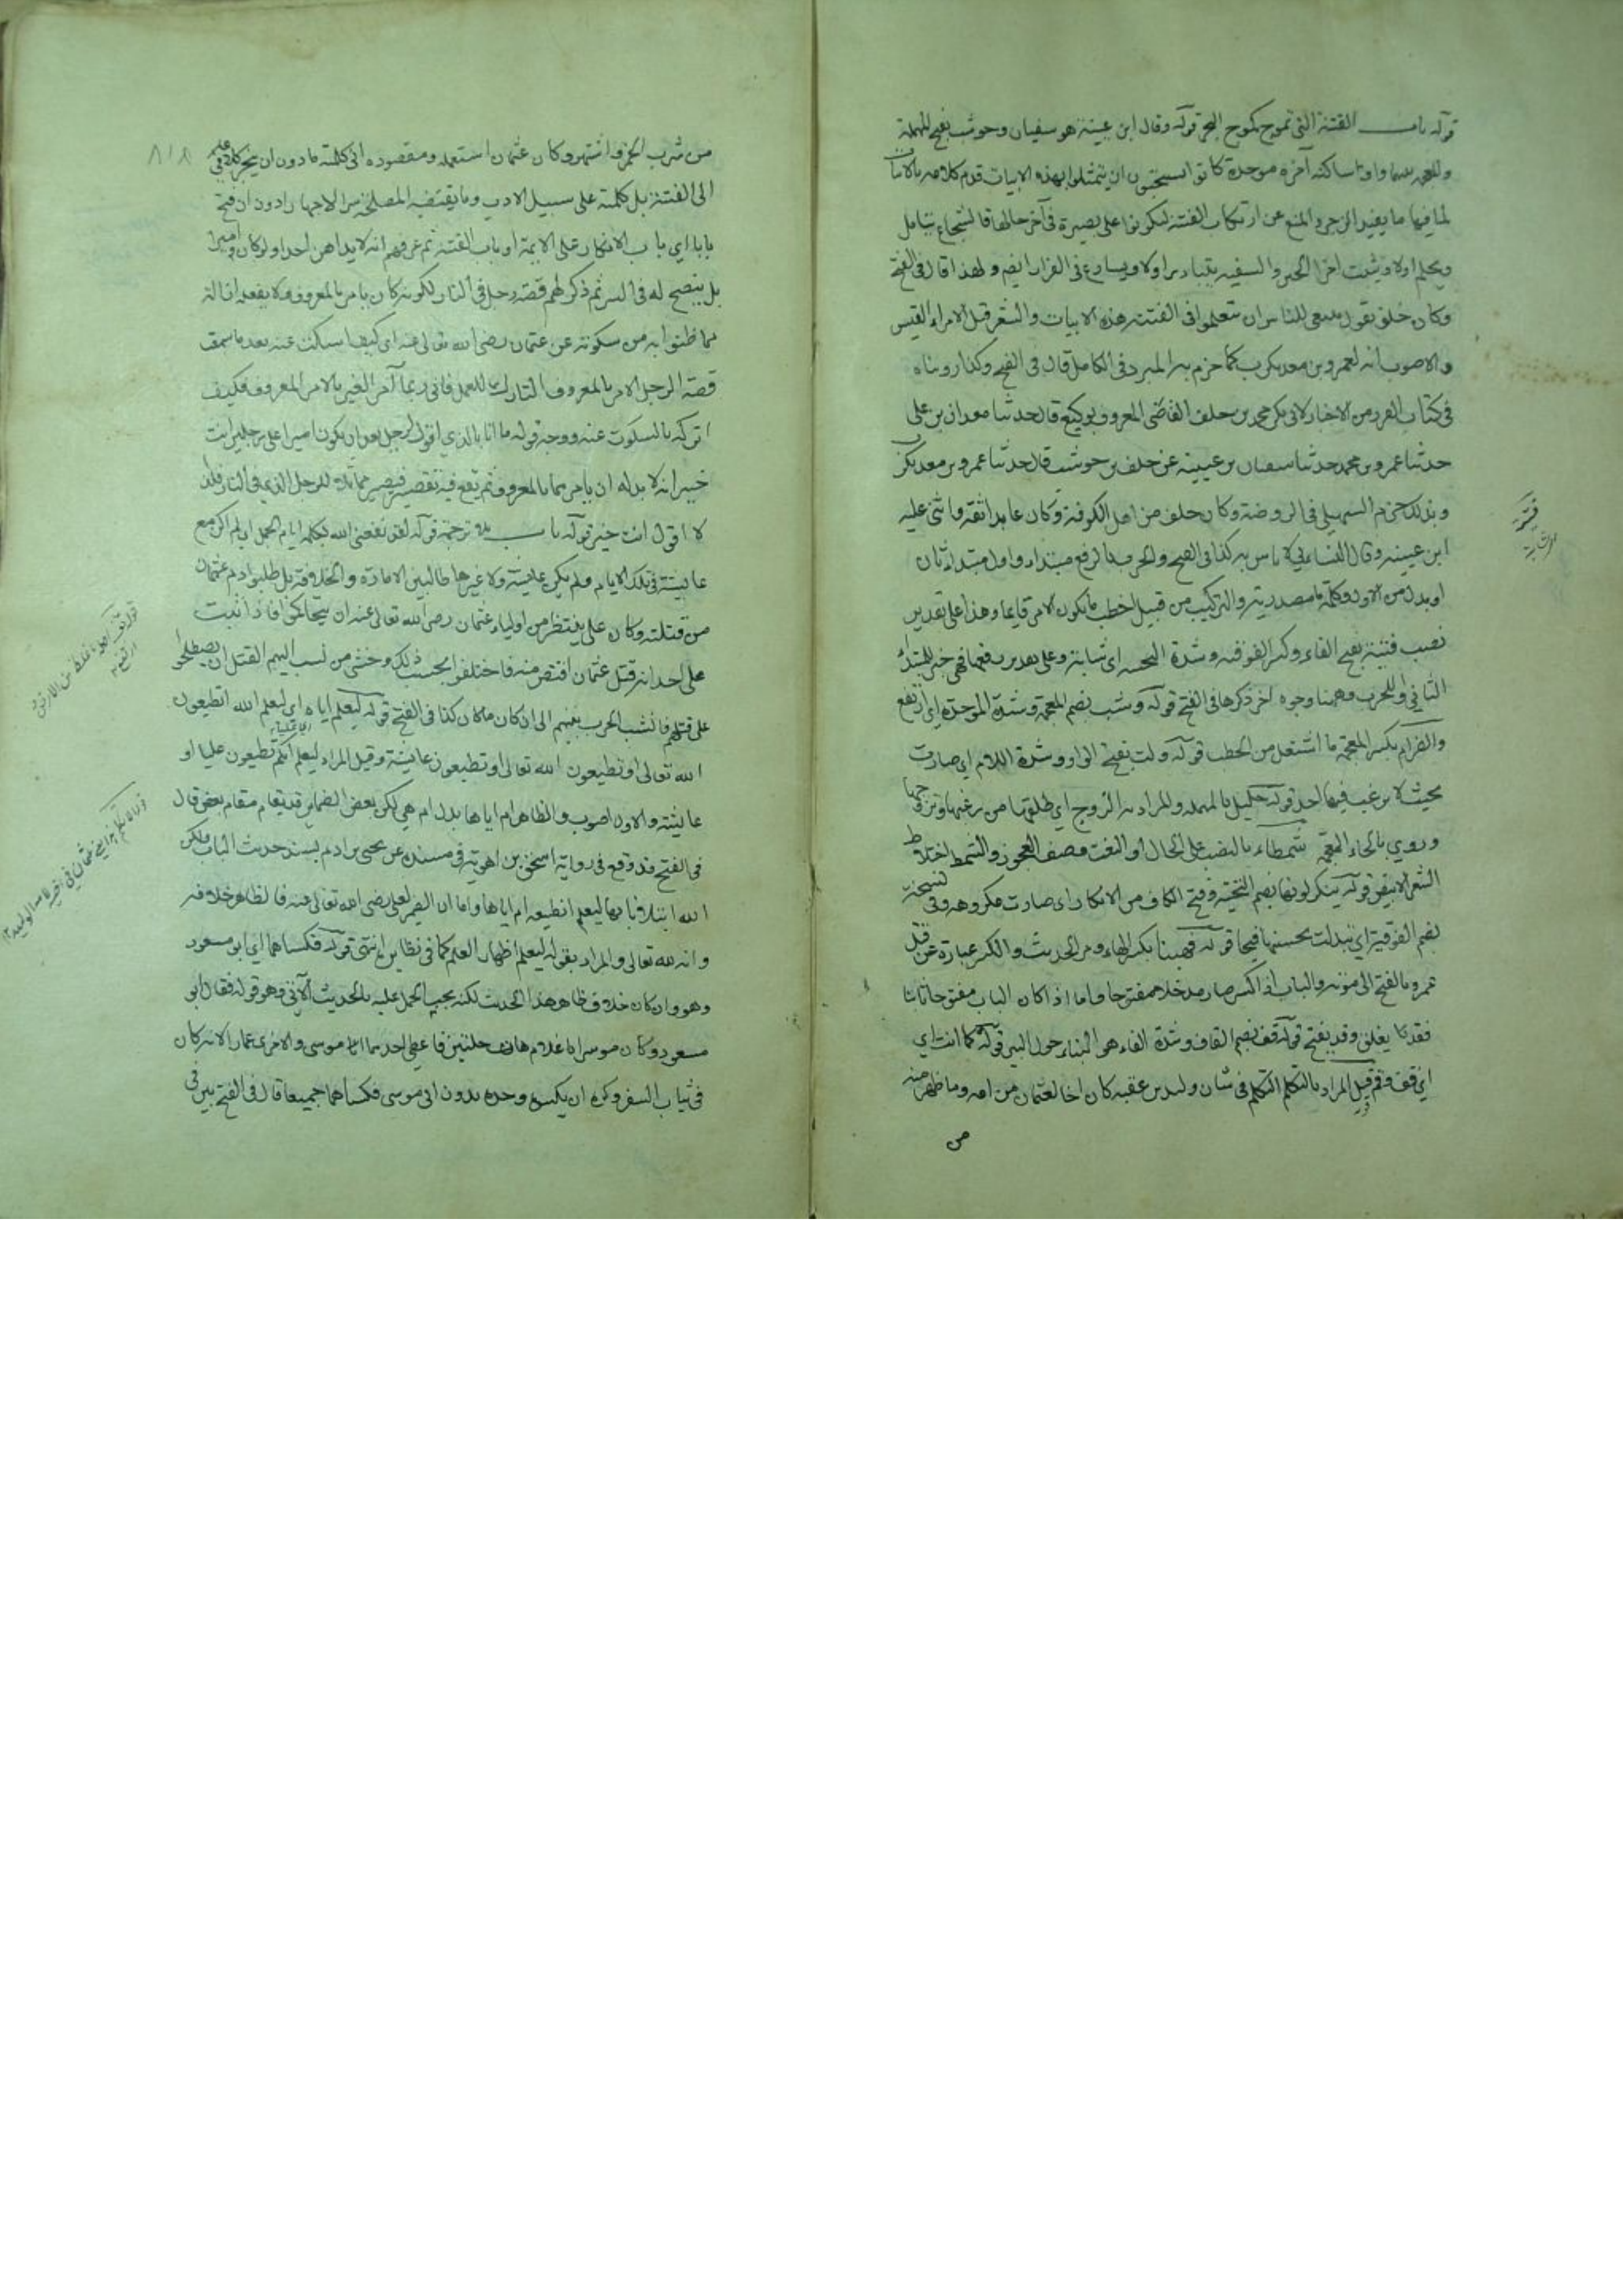 قوله باب الفتنة التي تموج كموج البحر قوله وقال ابن عيينة هو سفيان وحوشب بفتح المهملة
والمعجمة بينهما واو ساكنة آخره موحدة كانوا يستحبون ان يتمثلوا بهذه الابيات قدم كلامه بالابيات
لما فيها ما يفيد الزجر والمنع عن ارتكاب الفتنة ليكونوا على بصيرة في آخر حالها فالشجاع يتامل
ويحلم اولا ويثبت اخر الحين والسفيه يتبادر اولا ويسارع في الفرار ولهذا قال في الفتح
وكان خلف يقول ينبغي للناس ان يتعلموا في الفتنة هذه الابيات والشعر قيل لامرء القيس
والاصوب انه لعمرو بن معديكرب كما جزم به المبرد في الكامل قال في الفتح وكذا رويناه
في كتاب الغرر من الاخبار لابي بكر محمد بن خلف القاضي المعروف بوكيع قال حدثنا معدان بن علي
حدثنا عمرو بن محمد حدثنا سفيان بن عيينة عن خلف بن حوشب قال حدثنا عمرو بن معديكرب
وبذلك جزم السهيلي في الروضة وكان خلف من اهل الكوفة وكان عابدا ثقة واثنى عليه
ابن عيينة وقال النساءي لا باس به كذا في الفتح والحرب بالرفع مبتداء واول مبتداء ثان
او بدل من الاول وكلمة ما مصدرية والتركيب من قبيل اخطب ما يكون الامير قايما وهذا على تقدير
نصب فتية بفتح الفاء وكسر الفوقية وشدة التحتية اى شابة وعلى تقدير رفعها فهي خبر للمبتدا
الثاني او للحرب وههنا وجوه اخر ذكرها في الفتح قوله وشب بضم المعجمة وشدة الموحدة اي ارتفع
والضرام بكسر المعجمة ما اشتعل من الحطب قوله ولت بفتح الواو وشدة اللام اى صارت
بحيث لا يرغب فيها احد قوله حليل بالمهملة والمراد به الزوج اي طلقها من رغبها وتزوجها
وروي بالخاء المعجمة شمطاء بالنصب على الحال او النعت وصف العجوز والشمط اختلاط
الشعر الابيض قوله ينكر لونها بضم التحتية وفتح الكاف من الانكار اى صارت مكروهة وفي نسخة
بضم الفوقية اي تبدلت بحسنها قبحا قوله فهبنا بكسر الهاء ومر الحديث والكسر عبارة عن قتل
عمر وبالفتح الى موته والباب اذا اكسر صار مدخلا مفتوحا واما اذا كان الباب مفتوحا ثابتا
فقد يغلق وقد يفتح قوله قف بضم القاف وشدة الفاء هو البناء حول البير قوله كما انت اي
اي قف وقم قيل المراد بالتكلم التكلم في شان وليد بن عقبة كان اخا لعثمان من امه وما ظهر منه
من
فتية
اى شابة
٨١٨
من شرب الخمر واشتهر وكان عثمان استعمله ومقصوده اني كلمته ما دون ان يجر كلامي
الى الفتنة بل كلمته على سبيل الادب وما يقتضيه المصلحة سرا لاجهارا دون ان فتح
بابا اي باب الانكار على الايمة او باب الفتنة ثم عرفهم انه لا يداهن احدا ولو كان اميرا
بل ينصح له في السر ثم ذكر لهم قصة رجل في النار لكونه كان يامر بالمعروف ولا يفعله ازالة
مما ظنوا به من سكوته عن عثمان رضي الله تعالى عنه اى كيف اسكت عنه بعد ما سمعت
قصة الرجل الامر بالمعروف التارك للعمل فاني ربما آمر الغير بالامر المعروف فكيف
اتركه بالسكوت عنه ووجه قوله ما انا بالذي اقول لرجل بعد ان يكون اميرا على رجلين انت
خير انه لا بد له ان يامرهما بالمعروف ثم تقع فيه تقصير فيصير مماثلا للرجل الذي في النار فلذا
لا اقول انت خير قوله باب بلا ترجمة قوله لقد نفعني الله بكلمة ايام الجمل اي لم اكن مع
عايشة في تلك الايام ولم يكن عايشة ولا غيرها طالبين الامارة والخلافة بل طلبوا دم عثمان
من قتلته وكان علي ينتظر من اولياء عثمان رضى الله تعالى عنه ان يتحاكموا فاذا ثبت
على احد انه قتل عثمان اقتص منه فاختلفوا بحسب ذلك وخشى من نسب اليهم القتل ان يصطلحوا
على قتلهم فانشب الحرب بينهم الى ان كان ما كان كذا في الفتح قوله ليعلم اياه اى ليعلم الله اتطيعون
الله تعالى او تطيعون عايشة وقيل المراد ليعلم انكم تطيعون عليا او
عايشة والاول اصوب والظاهر ام اياها بدل ام هي لكن بعض الضماير قد يقام مقام بعض قال
في الفتح قد وقع في رواية اسحق بن راهويه في مسنده عن يحيى بن ادم بسند حديث الباب ولكن
الله ابتلانا بها ليعلم انطيعه ام اياها واما ان الضمير لعلي رضى الله تعالى عنه فالظاهر خلافه
وانه لله تعالى والمراد بقوله ليعلم اظهار العلم كما في نظايره انتهى قوله فكساهما اي ابو مسعود
وهو وان كان خلاف ظاهر هذا الحديث لكنه يجب الحمل عليه بالحديث الآتي وهو قوله فقال ابو
مسعود وكان موسرا يا غلام هات حلتين فاعطى احدهما ابا موسى والاخرى عمار الانه كان
في ثياب السفر وكره ان يكسوه وحده بدون ابي موسى فكساهما جميعا قال في الفتح بين في